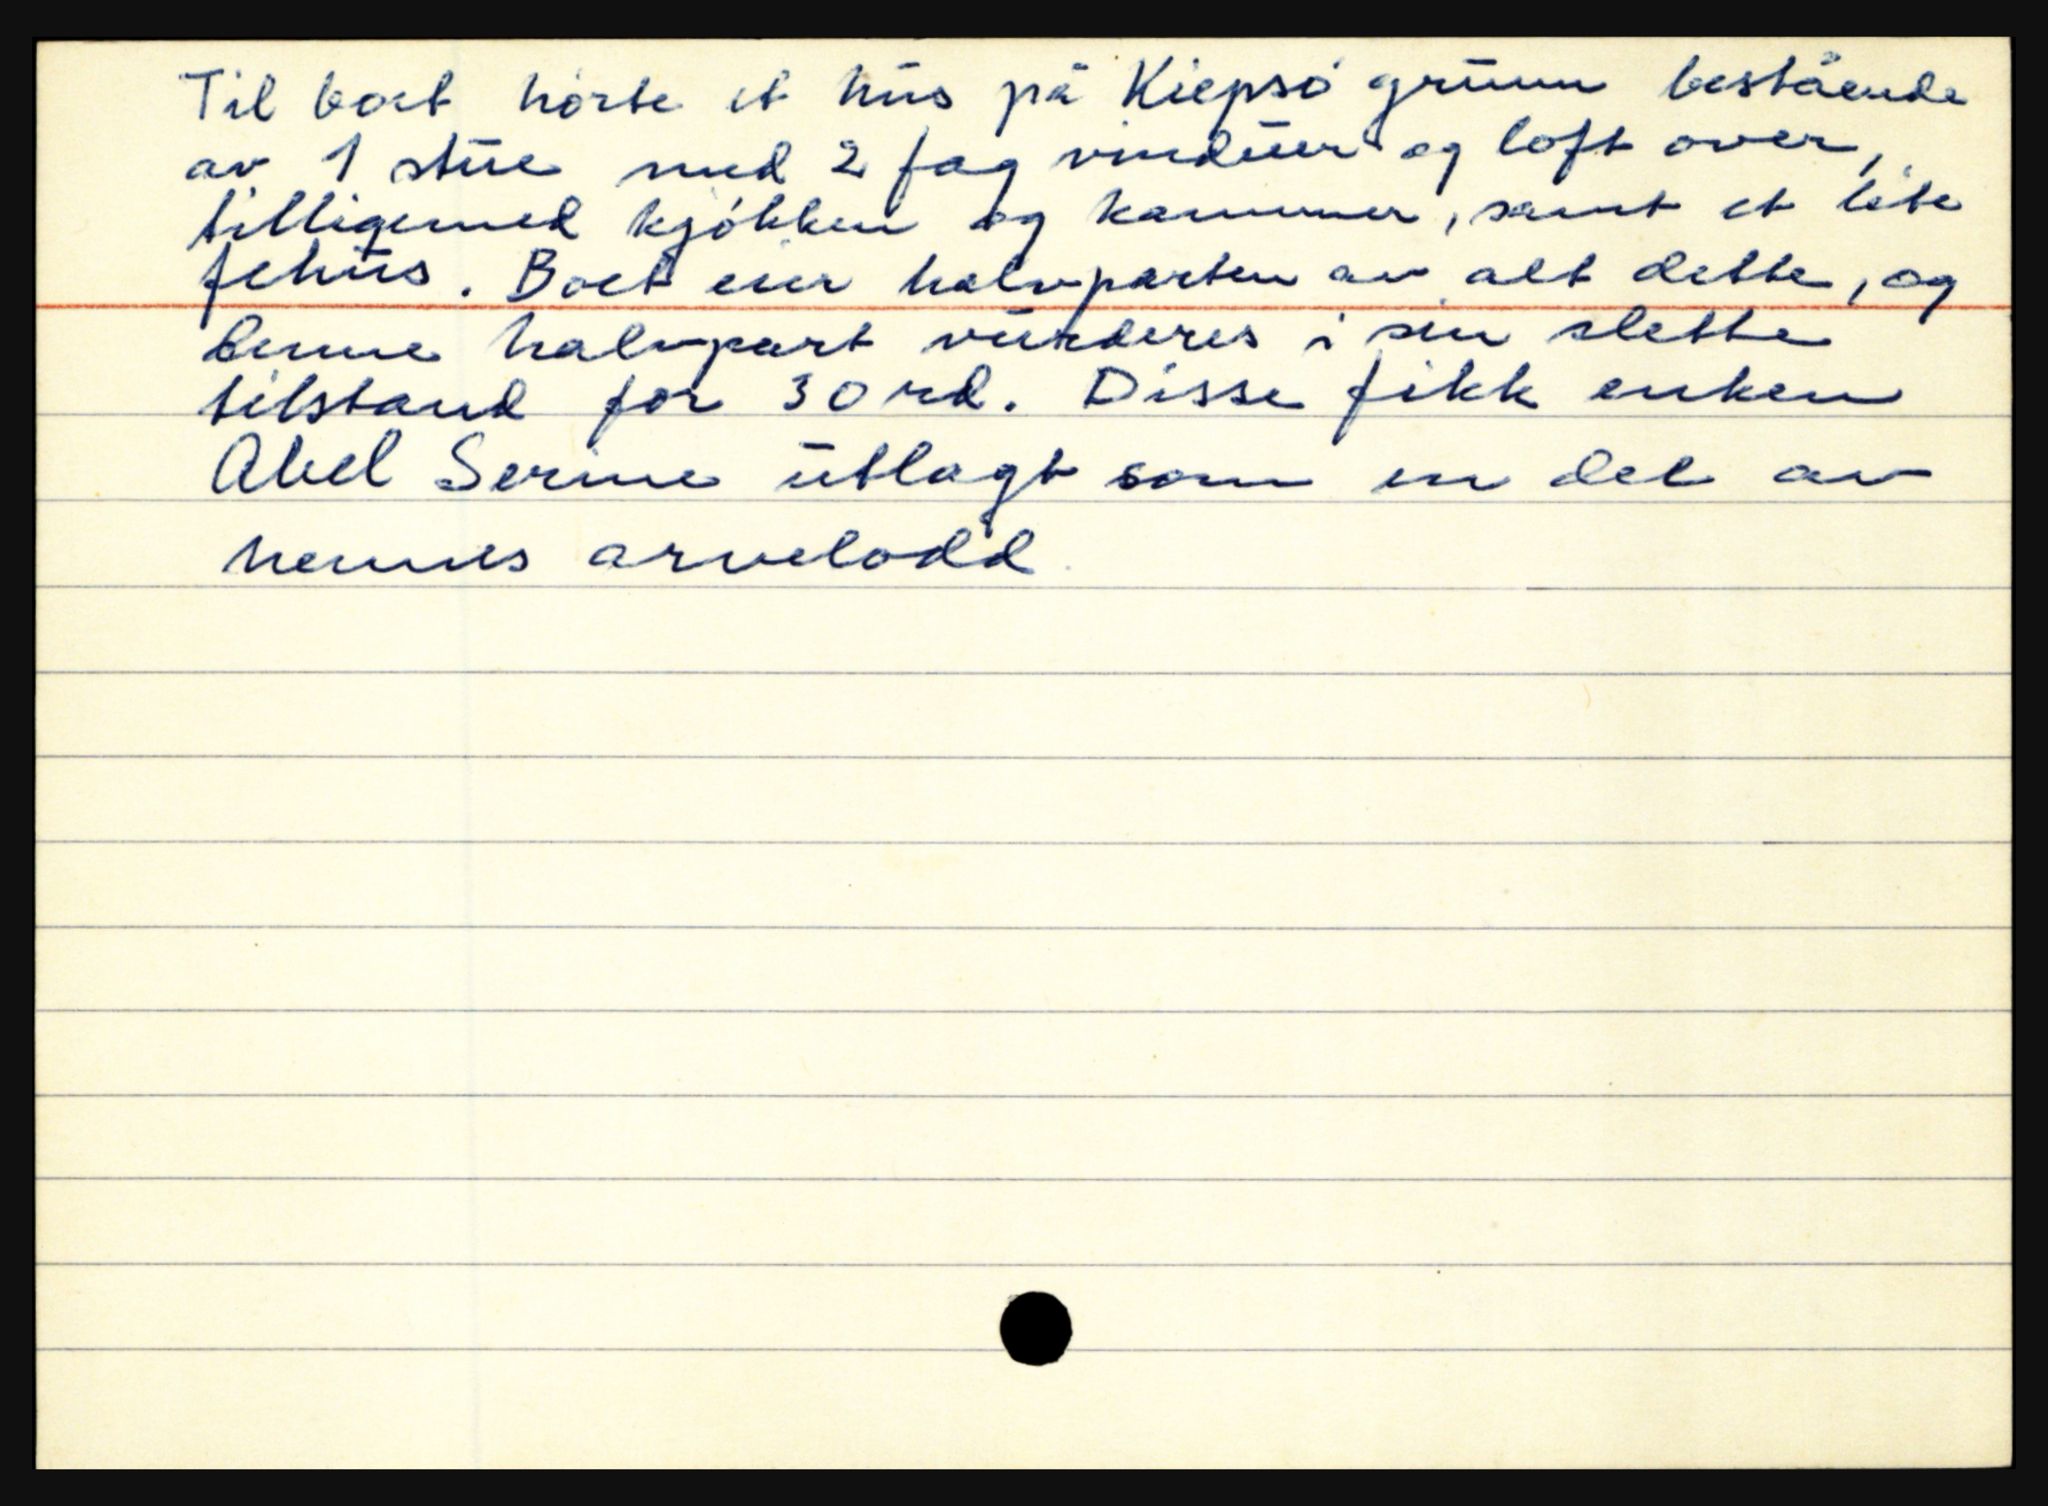 Til boet hørte et hus på Kiepsø grunn bestående
av 1 stue med 2 fag vinduer og loft over,
tilligemed kjøkken og kammer, samt et lite
fehus. Boet eier halvparten av alt dette, og
denne halvpart vurderes i sin slette
tilstand for 30 rd. Disse fikk enken
Abel Serine utlagt som en del av
hennes arvelodd